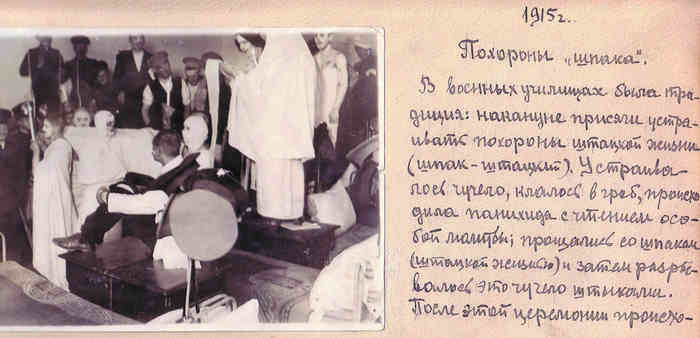 1915 г..
Похороны „шпака".
В военных училищах была тра-
диция: накануне присяги устра-
ивать похороны штацкой жизни
(шпак-штацкий). Устраива-
лось чучело, клалось в гроб, происхо-
дила панихида с чтением осо-
бой молитвы; прощались со шпаком
(штацкой жизнью) и затем разры-
валось это чучело штыками.
После этой церемонии происхо-